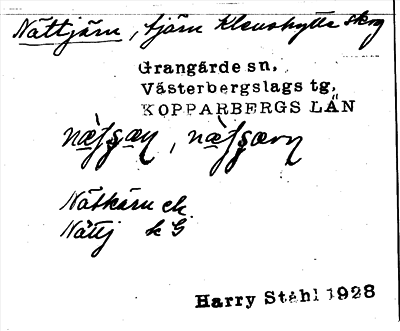 Nättjärn, tjärn Klenshytte skog
Grangärde sn.
Västerbergslags tg.
KOPPARBERGS LÄN
Nätkärn ek
Nättj k G
Harry Ståhl 1928